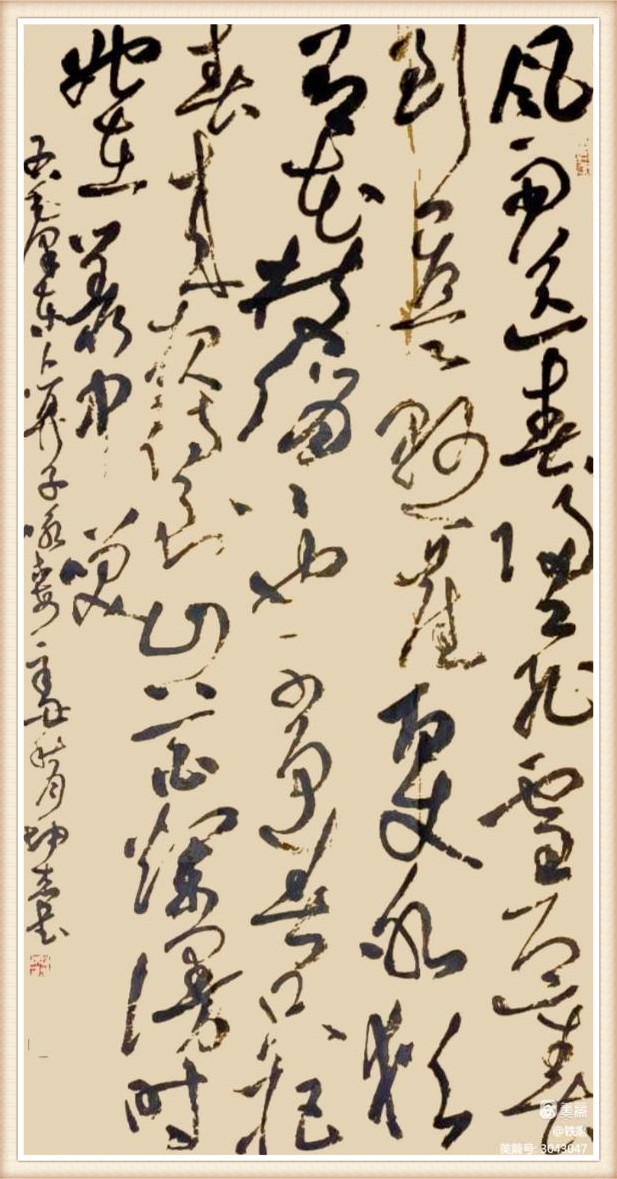 风雨送春归飞雪迎春
到已是悬崖百丈冰犹
有花枝俏々也不争春只把
春来报待到山花烂漫时
她在丛中笑
毛泽东卜算子咏梅秋月坤志书
美篇
美篇号: 3043047